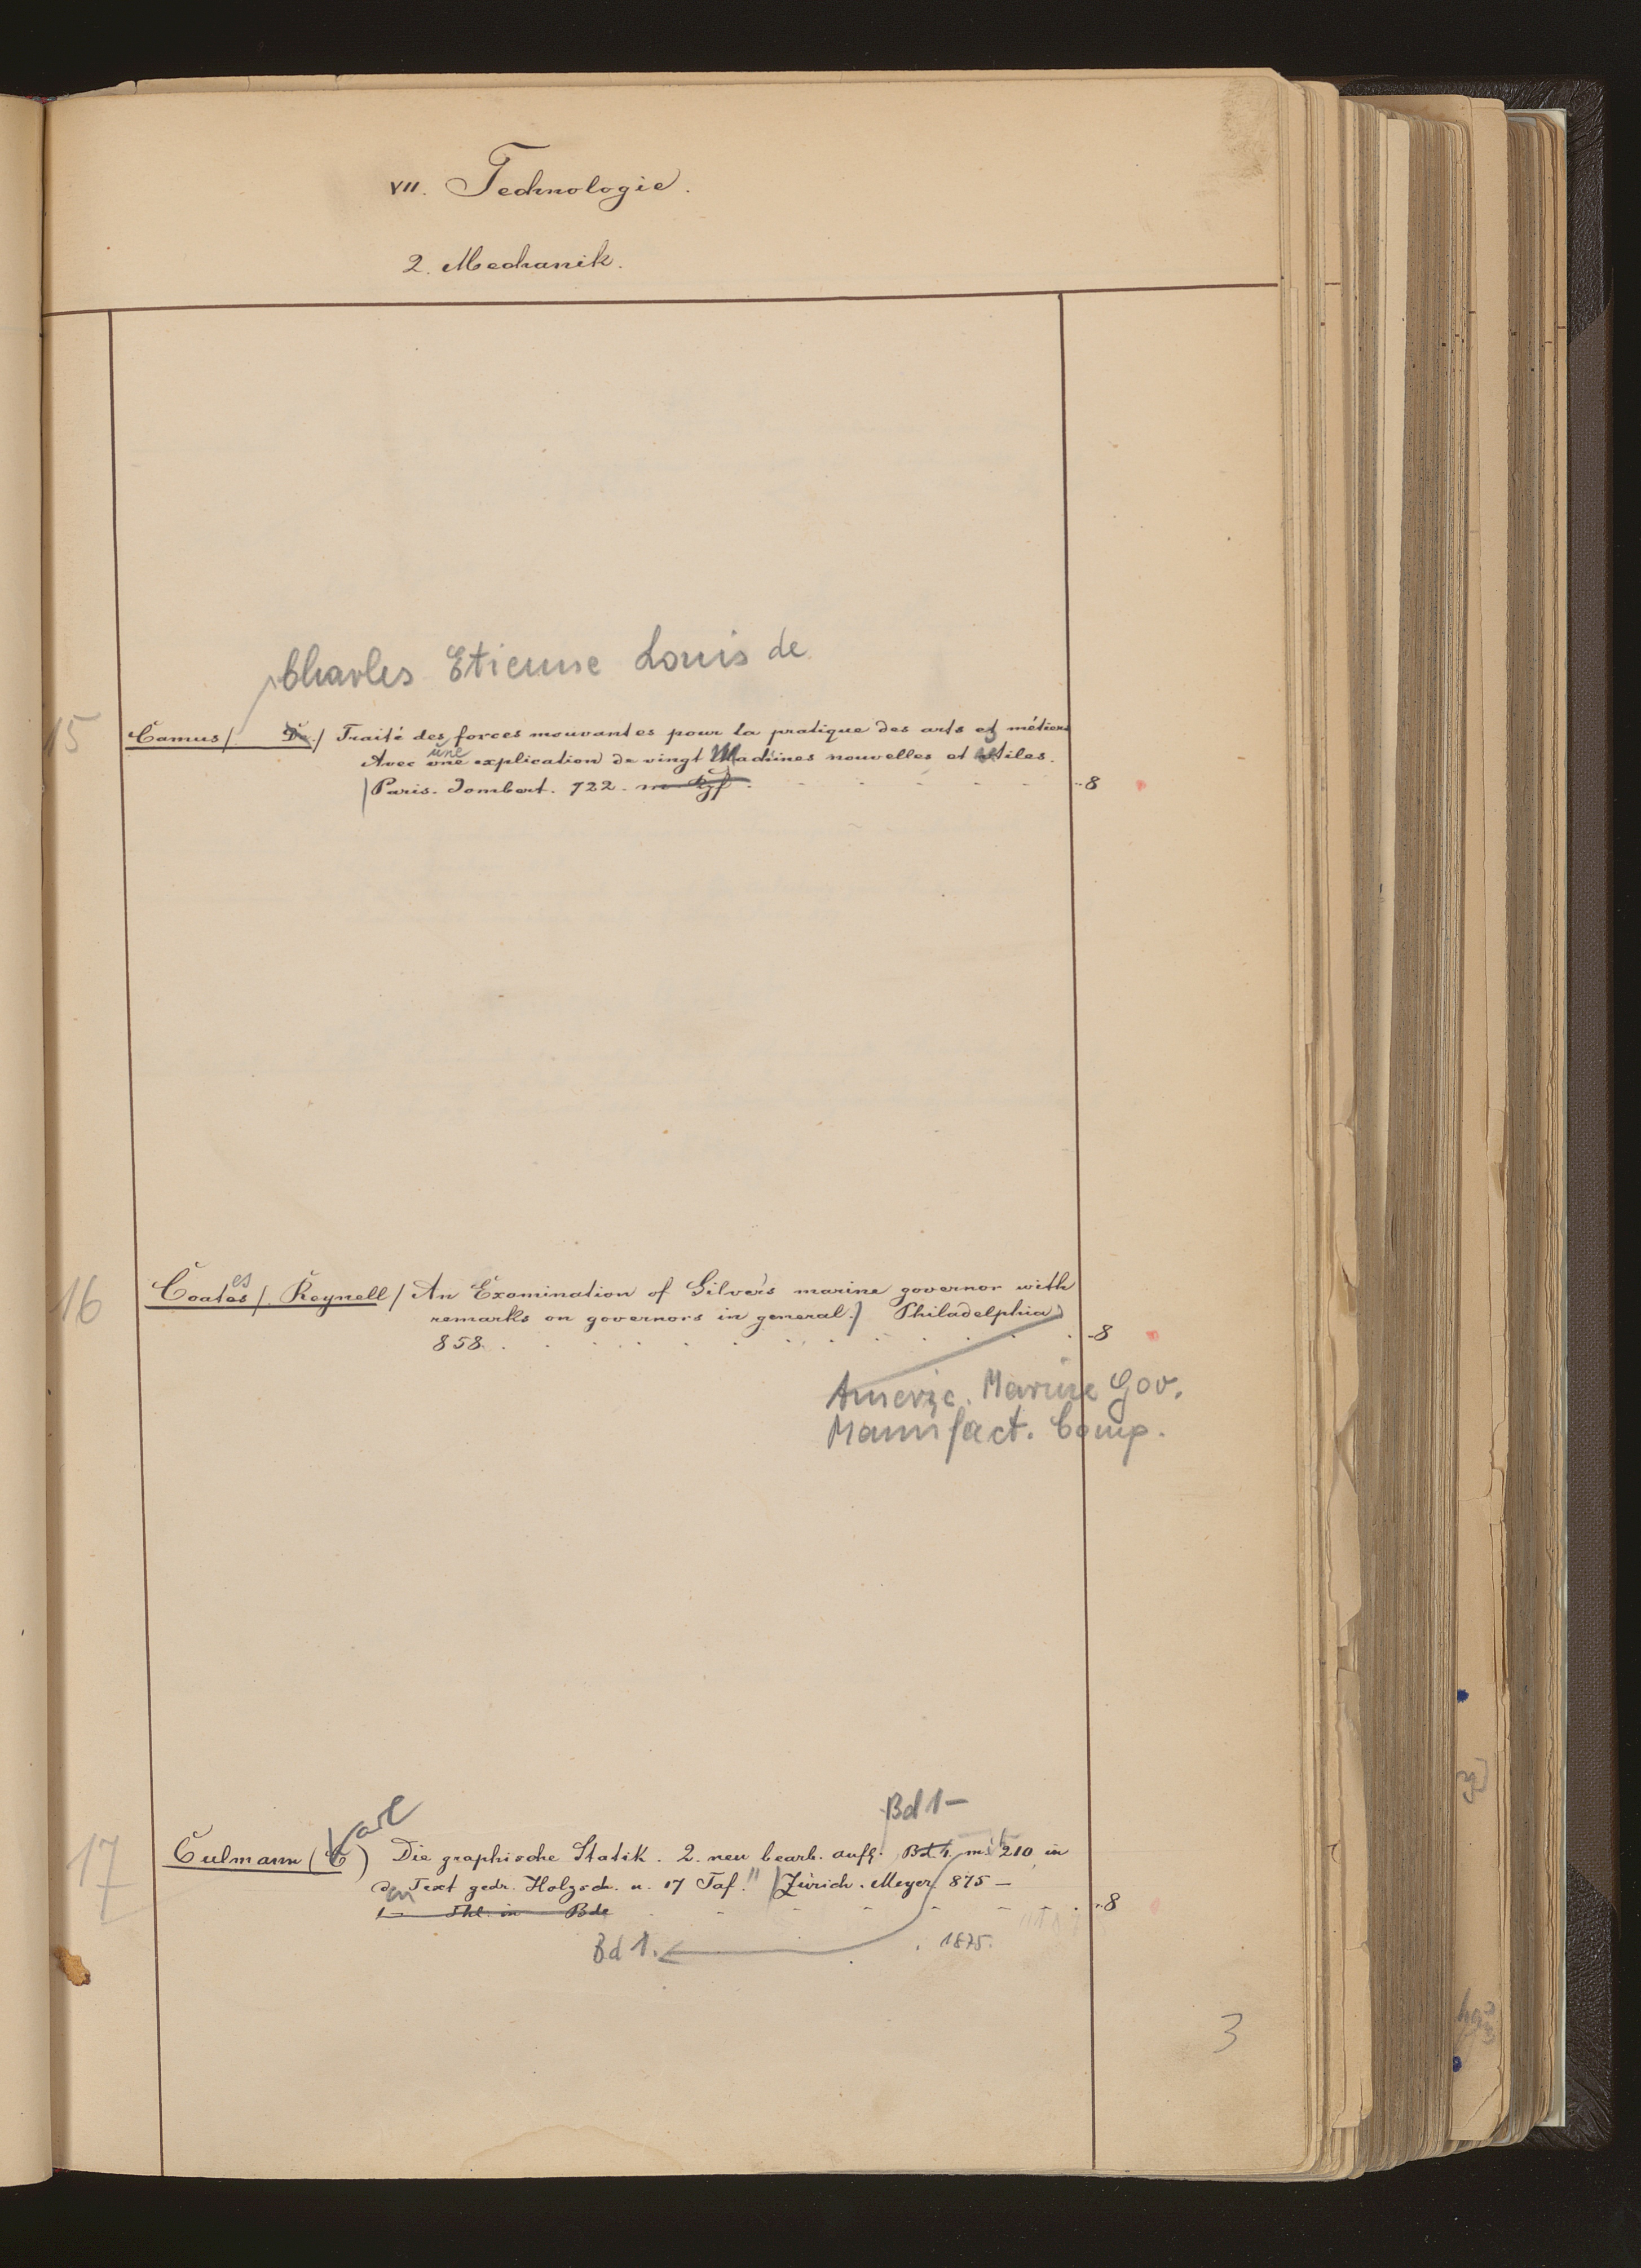 VII. Technologie.
2. Mechanik.
Charles Etienne Louis de
15
Camus / De. / Traité des forces mouvantes pour la pratique des arts et métiers
une
Avec une explication de vingt Machines nouvelles et utiles.
Paris. Jombert. 722. m Kpf. - - - - - 8
16
es
Coates / Reynell / An Examination of Silver's marine governor with
remarks on governors in general.) Philadelphia
858. . . . . . . . 8
Americ. Marine Gov.
Manufact. Comp.
Bd 1-
Karl
17
Culmann (C) Die graphische Statik. 2. neu bearb. Aufl. Bd. 1. mit 210 in
den Text gedr. Holzsch. u. 17 Taf." Zürich. Meyer. 875 —
1 — Thl. in Bde - - - - - 8
Bd 1. 1875.
3